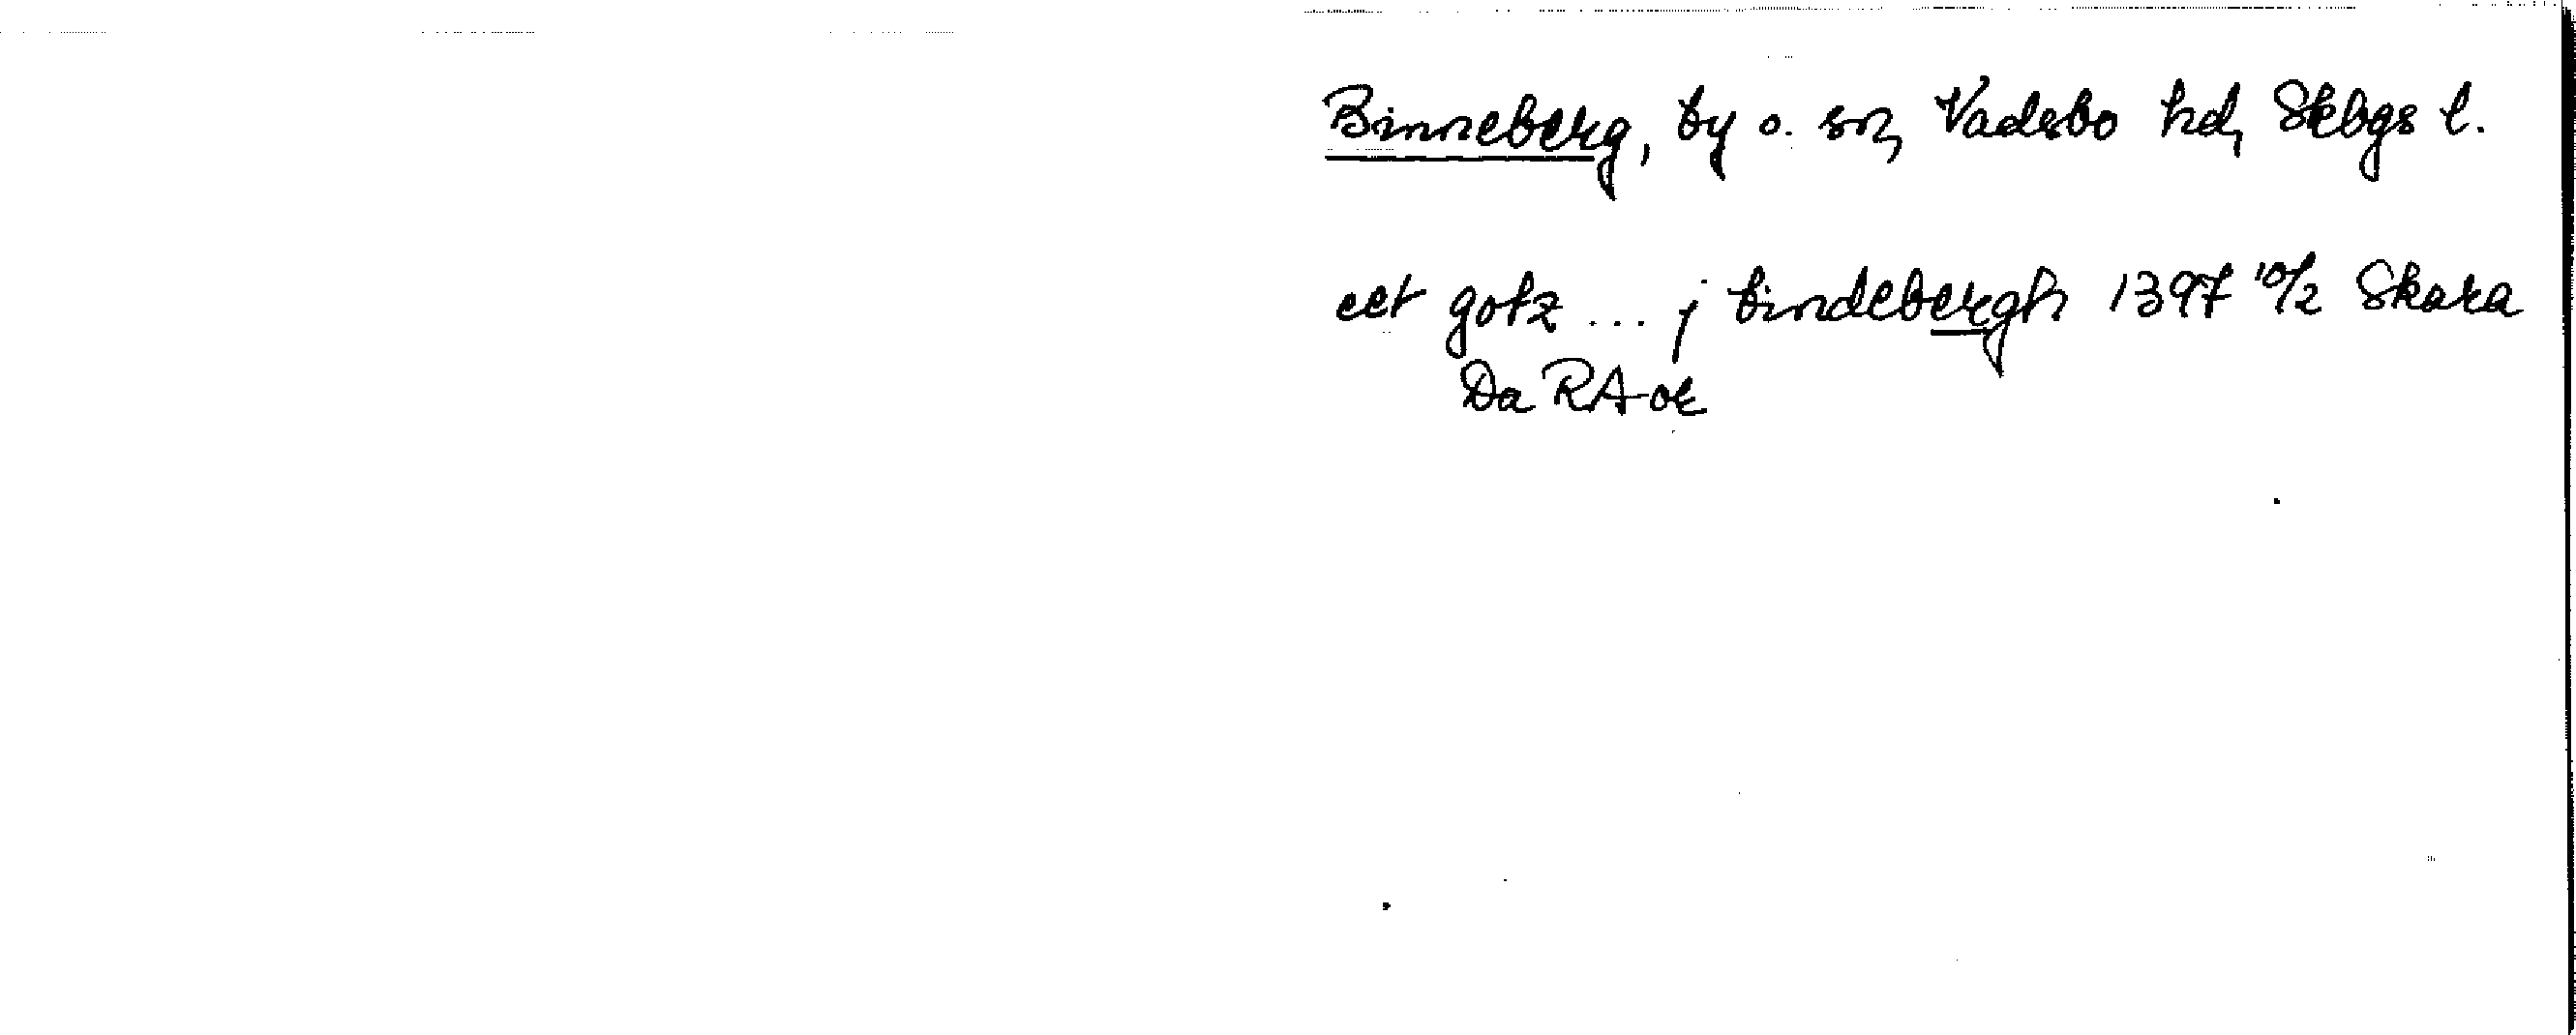 Binneberg, by o. sn, Vadsbo hd, Skbgs l.
eet gotz ... j bindebergh 1397 10/2 Skara
Da RA or